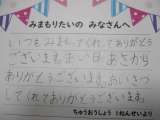 みまもりたいの みなさんへ
いつもみまもってくれてありがとう
ございます。あつい日も あさから
ありがとうございます。
してくれてありがとうございます。
ちゅうおうしょう 1ねんせいより